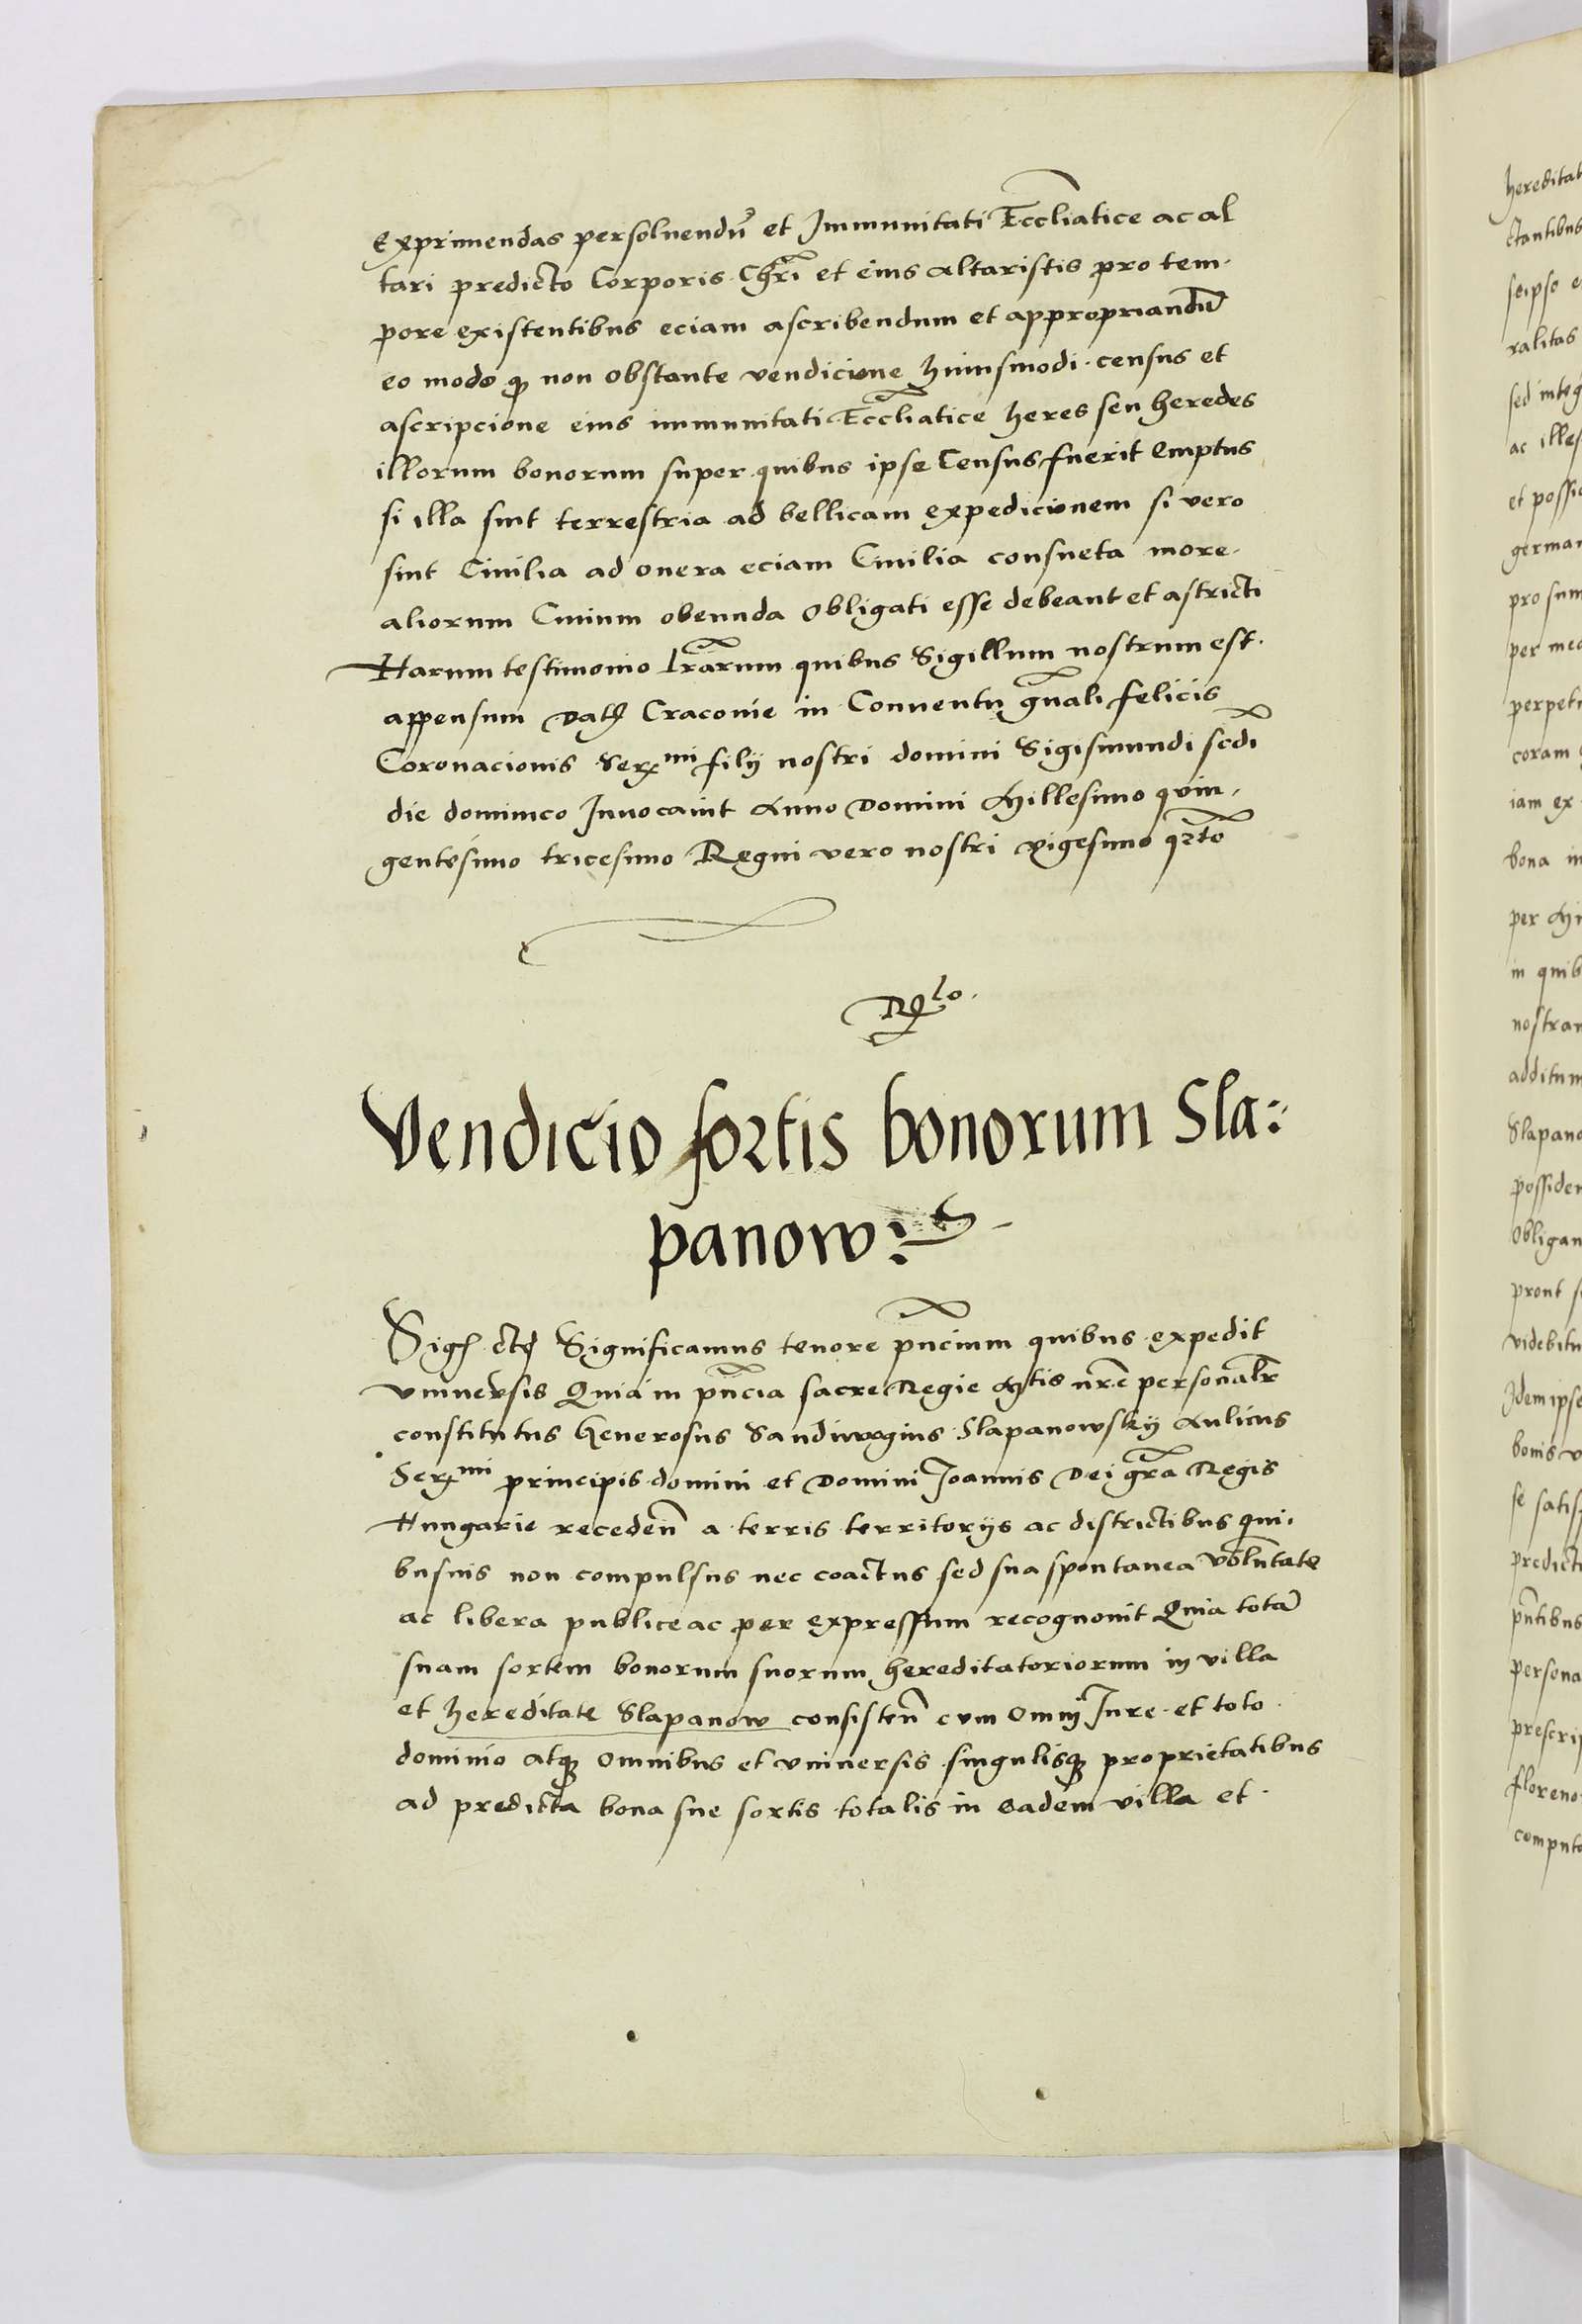 Exprimendas persoluendū et Immunitati Eccl̄iatice ac al
tari predicto Corporis Chr̄i et eius altaristis pro tem-
pore existentibus eciam ascribendum et appropriandū
eo modo q̨ non obstante vendicione huiusmodi census et
ascripcione eius immunitati Eccl̄iatice heres seu heredes
illorum bonorum super quibus ipse Census fuerit Emptus
si illa sint terrestria ad bellicam expedicionem si vero
sint Ciuilia ad onera eciam Ciuilia consueta more
aliorum Ciuium obeunda obligati esse debeant et astricti
Harum testimonio lr̄arum quibus Sigillum nostrum est
appensum Datꝭ Cracouie in Conuentu gn̄ali felicis
Coronacionis Serꝫmi filij nostri domini Sigismundi scd̄i
die dominico Inuocauit Anno Domini Millesimo quin-
gentesimo tricesimo Regni vero nostri vigesimo qr̄to
Rlo.
Vendicio sortis bonorum Sla:
panow:
Sigꝭ etcꝭ Significamus tenore pn̄cium quibus expedit
vniuersis Quia in pn̄cia sacre Regie Mtis nr̄e personalr̄
constitutus Generosus Sandiuogius Slapanowskij Aulicus
Serꝫmi principis domini et Domini Joannis Dei gr̄a Regis
Hungarie recedeñ a terris territorijs ac districtibus qui-
busuis non compulsus nec coactus sed sua spontanea volūntate
ac libera publice ac per expressum recognouit Quia totā
suam sortem bonorum suorum hereditatoriorum in villa
et hereditate Slapanow consisteñ cum Omnj Jure et toto
dominio atqꝫ omnibus et vniuersis singulisqꝫ proprietatibus
ad predicta bona sue sortis totalis in eadem villa et
hereditat
ctantibus
seipse e
ralitas
sed integ
ac illes
et possi
german
pro sum
per med
perpetu
coram
iam ex
bona in
per Mi
in quib
nostram
additum
Slapano
possiden
Obligan
prout s
videbitu
Idem ipse
bonis v
se satis
predict
pn̄tibus
persona
prescrip
floreno
computo